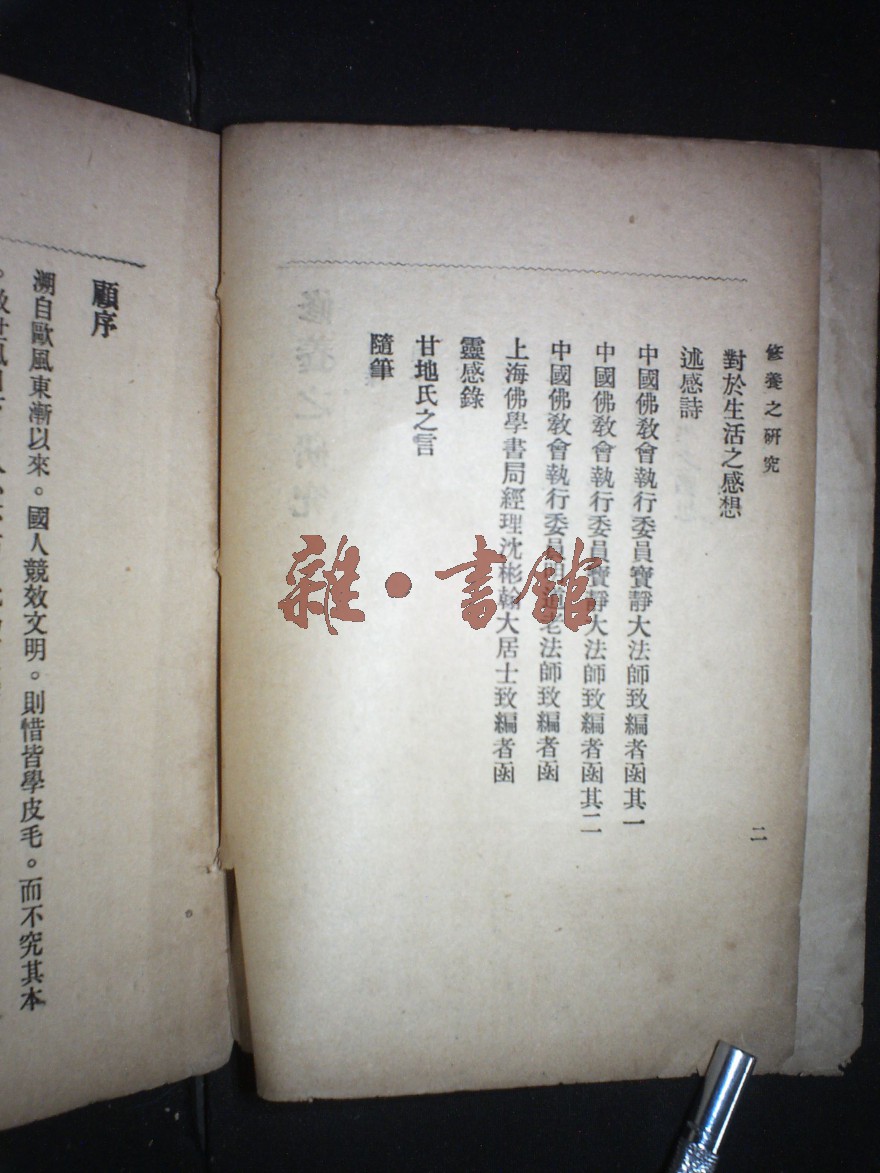 修養之研究
二
對於生活之感想
述感詩
中國佛教會執行委員寶靜大法師致編者函其一
中國佛教會執行委員寶靜大法師致編者函其二
中國佛教會執行委員明道老法師致編者函
上海佛學書局經理沈彬翰大居士致編者函
靈感錄
甘地氏之言
隨筆
雜·書館
顧序
溯自歐風東漸以來。國人競效文明。則惜皆學皮毛。而不究其本